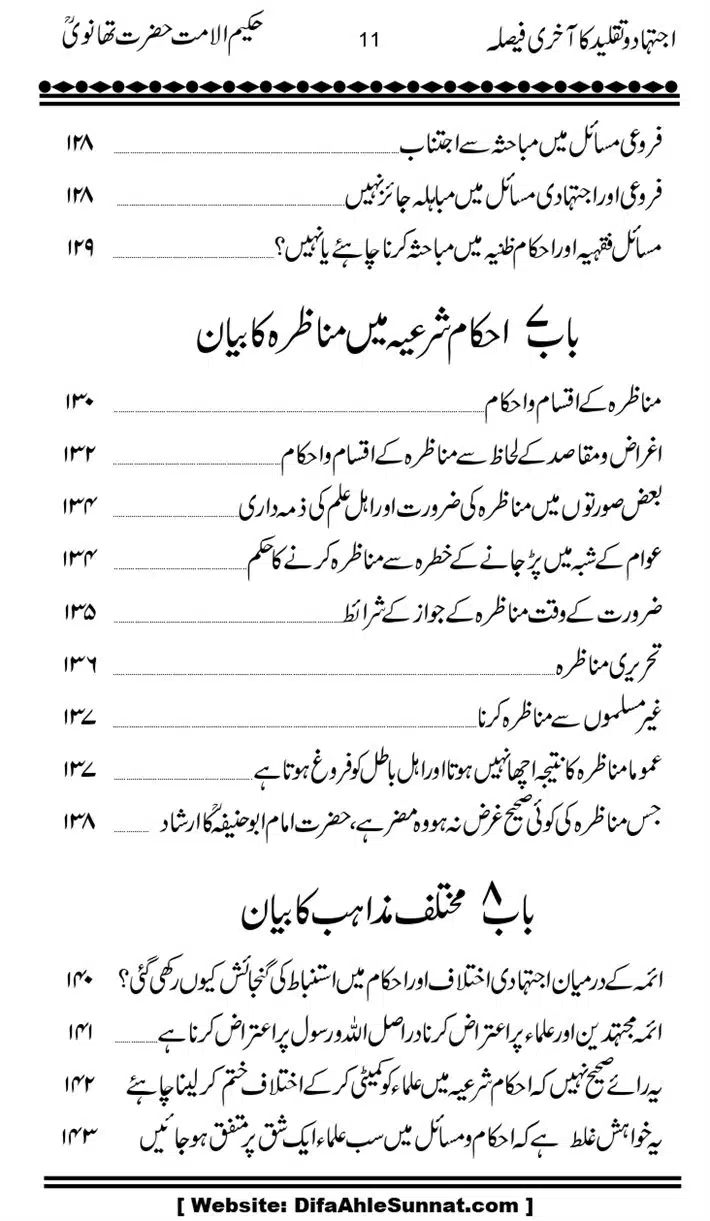 اجتہاد و تقلید کا آخری فیصلہ 11 حکیم الامت حضرت تھانویؒ
فروعی مسائل میں مباحثہ سے اجتناب ۱۲۸
فروعی اور اجتہادی مسائل میں مباہلہ جائز نہیں ۱۲۸
مسائل فقہیہ اور احکام ظنیہ میں مباحثہ کرنا چاہئے یا نہیں؟ ۱۲۹
باب ۷ احکام شرعیہ میں مناظرہ کا بیان
مناظرہ کے اقسام و احکام ۱۳۰
اغراض و مقاصد کے لحاظ سے مناظرہ کے اقسام و احکام ۱۳۲
بعض صورتوں میں مناظرہ کی ضرورت اور اہل علم کی ذمہ داری ۱۳۴
عوام کے شبہ میں پڑ جانے کے خطرہ سے مناظرہ کرنے کا حکم ۱۳۴
ضرورت کے وقت مناظرہ کے جواز کے شرائط ۱۳۵
تحریری مناظرہ ۱۳۶
غیر مسلموں سے مناظرہ کرنا ۱۳۷
عموما مناظرہ کا نتیجہ اچھا نہیں ہوتا اور اہل باطل کو فروغ ہوتا ہے ۱۳۷
جس مناظرہ کی کوئی صحیح غرض نہ ہو وہ مضر ہے، حضرت امام ابو حنیفہؒ کا ارشاد ۱۳۸
باب ۸ مختلف مذاہب کا بیان
ائمہ کے درمیان اجتہادی اختلاف اور احکام میں استنباط کی گنجائش کیوں رکھی گئی؟ ۱۴۰
ائمہ مجتہدین اور علماء پر اعتراض کرنا دراصل اللہ و رسول پر اعتراض کرنا ہے ۱۴۱
یہ رائے صحیح نہیں کہ احکام شرعیہ میں علماء کو کمیٹی کر کے اختلاف ختم کر لینا چاہئے ۱۴۲
یہ خواہش غلط ہے کہ احکام و مسائل میں سب علماء ایک شق پر متفق ہو جائیں ۱۴۳
[ Website: DifaAhleSunnat.com ]